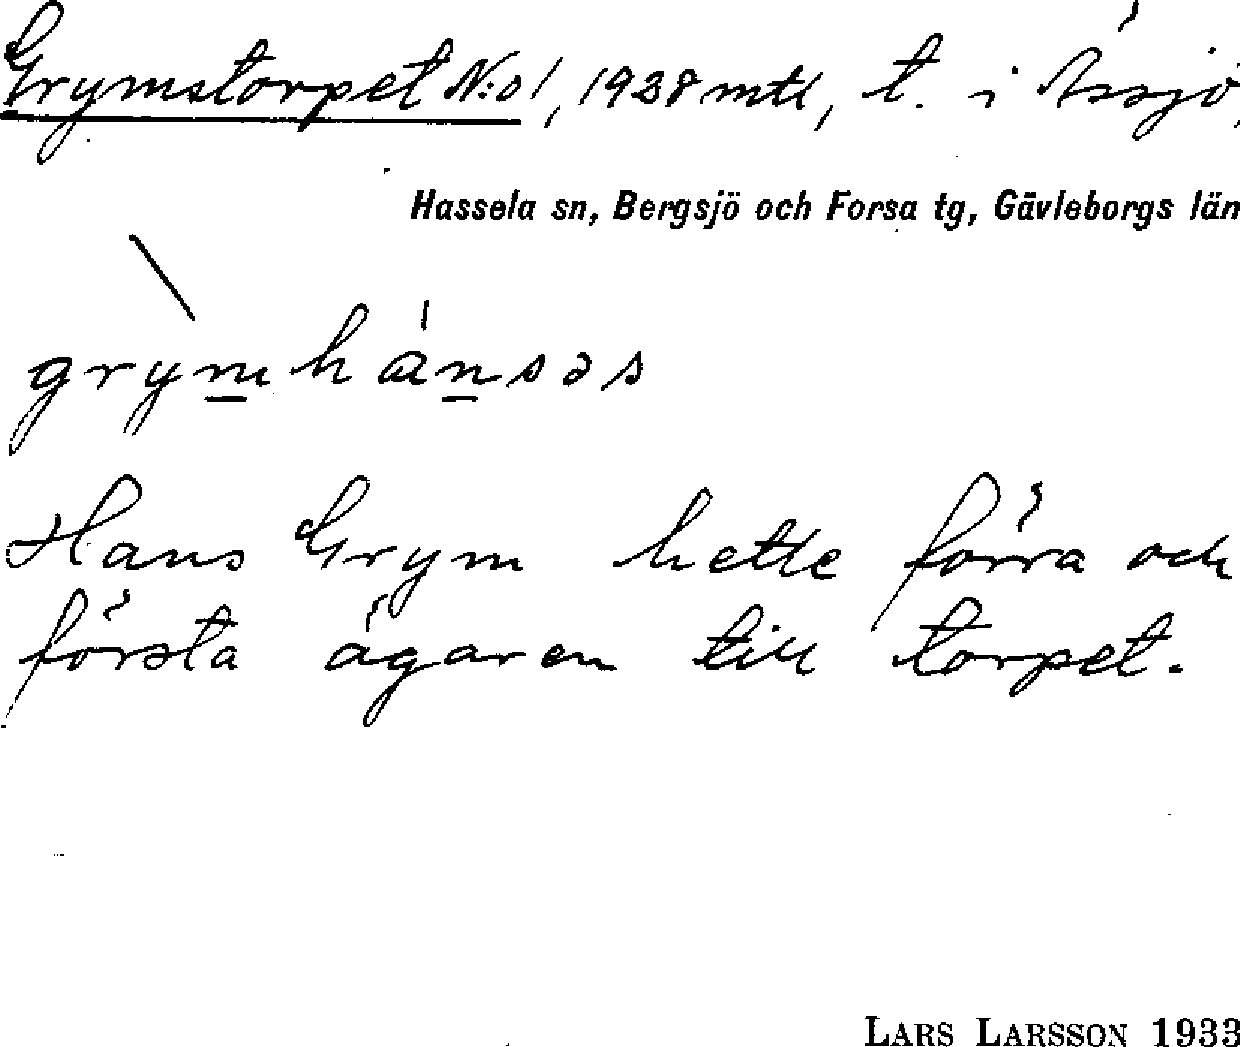 Grymstorpet N:o 1, 1928 mtl, t. i Ässjö,
Hassela sn, Bergsjö och Forsa tg, Gävleborgs län
grỳmhánsəs
Hans Grym hette förra och
första ägaren till torpet.
LARS LARSSON 1933